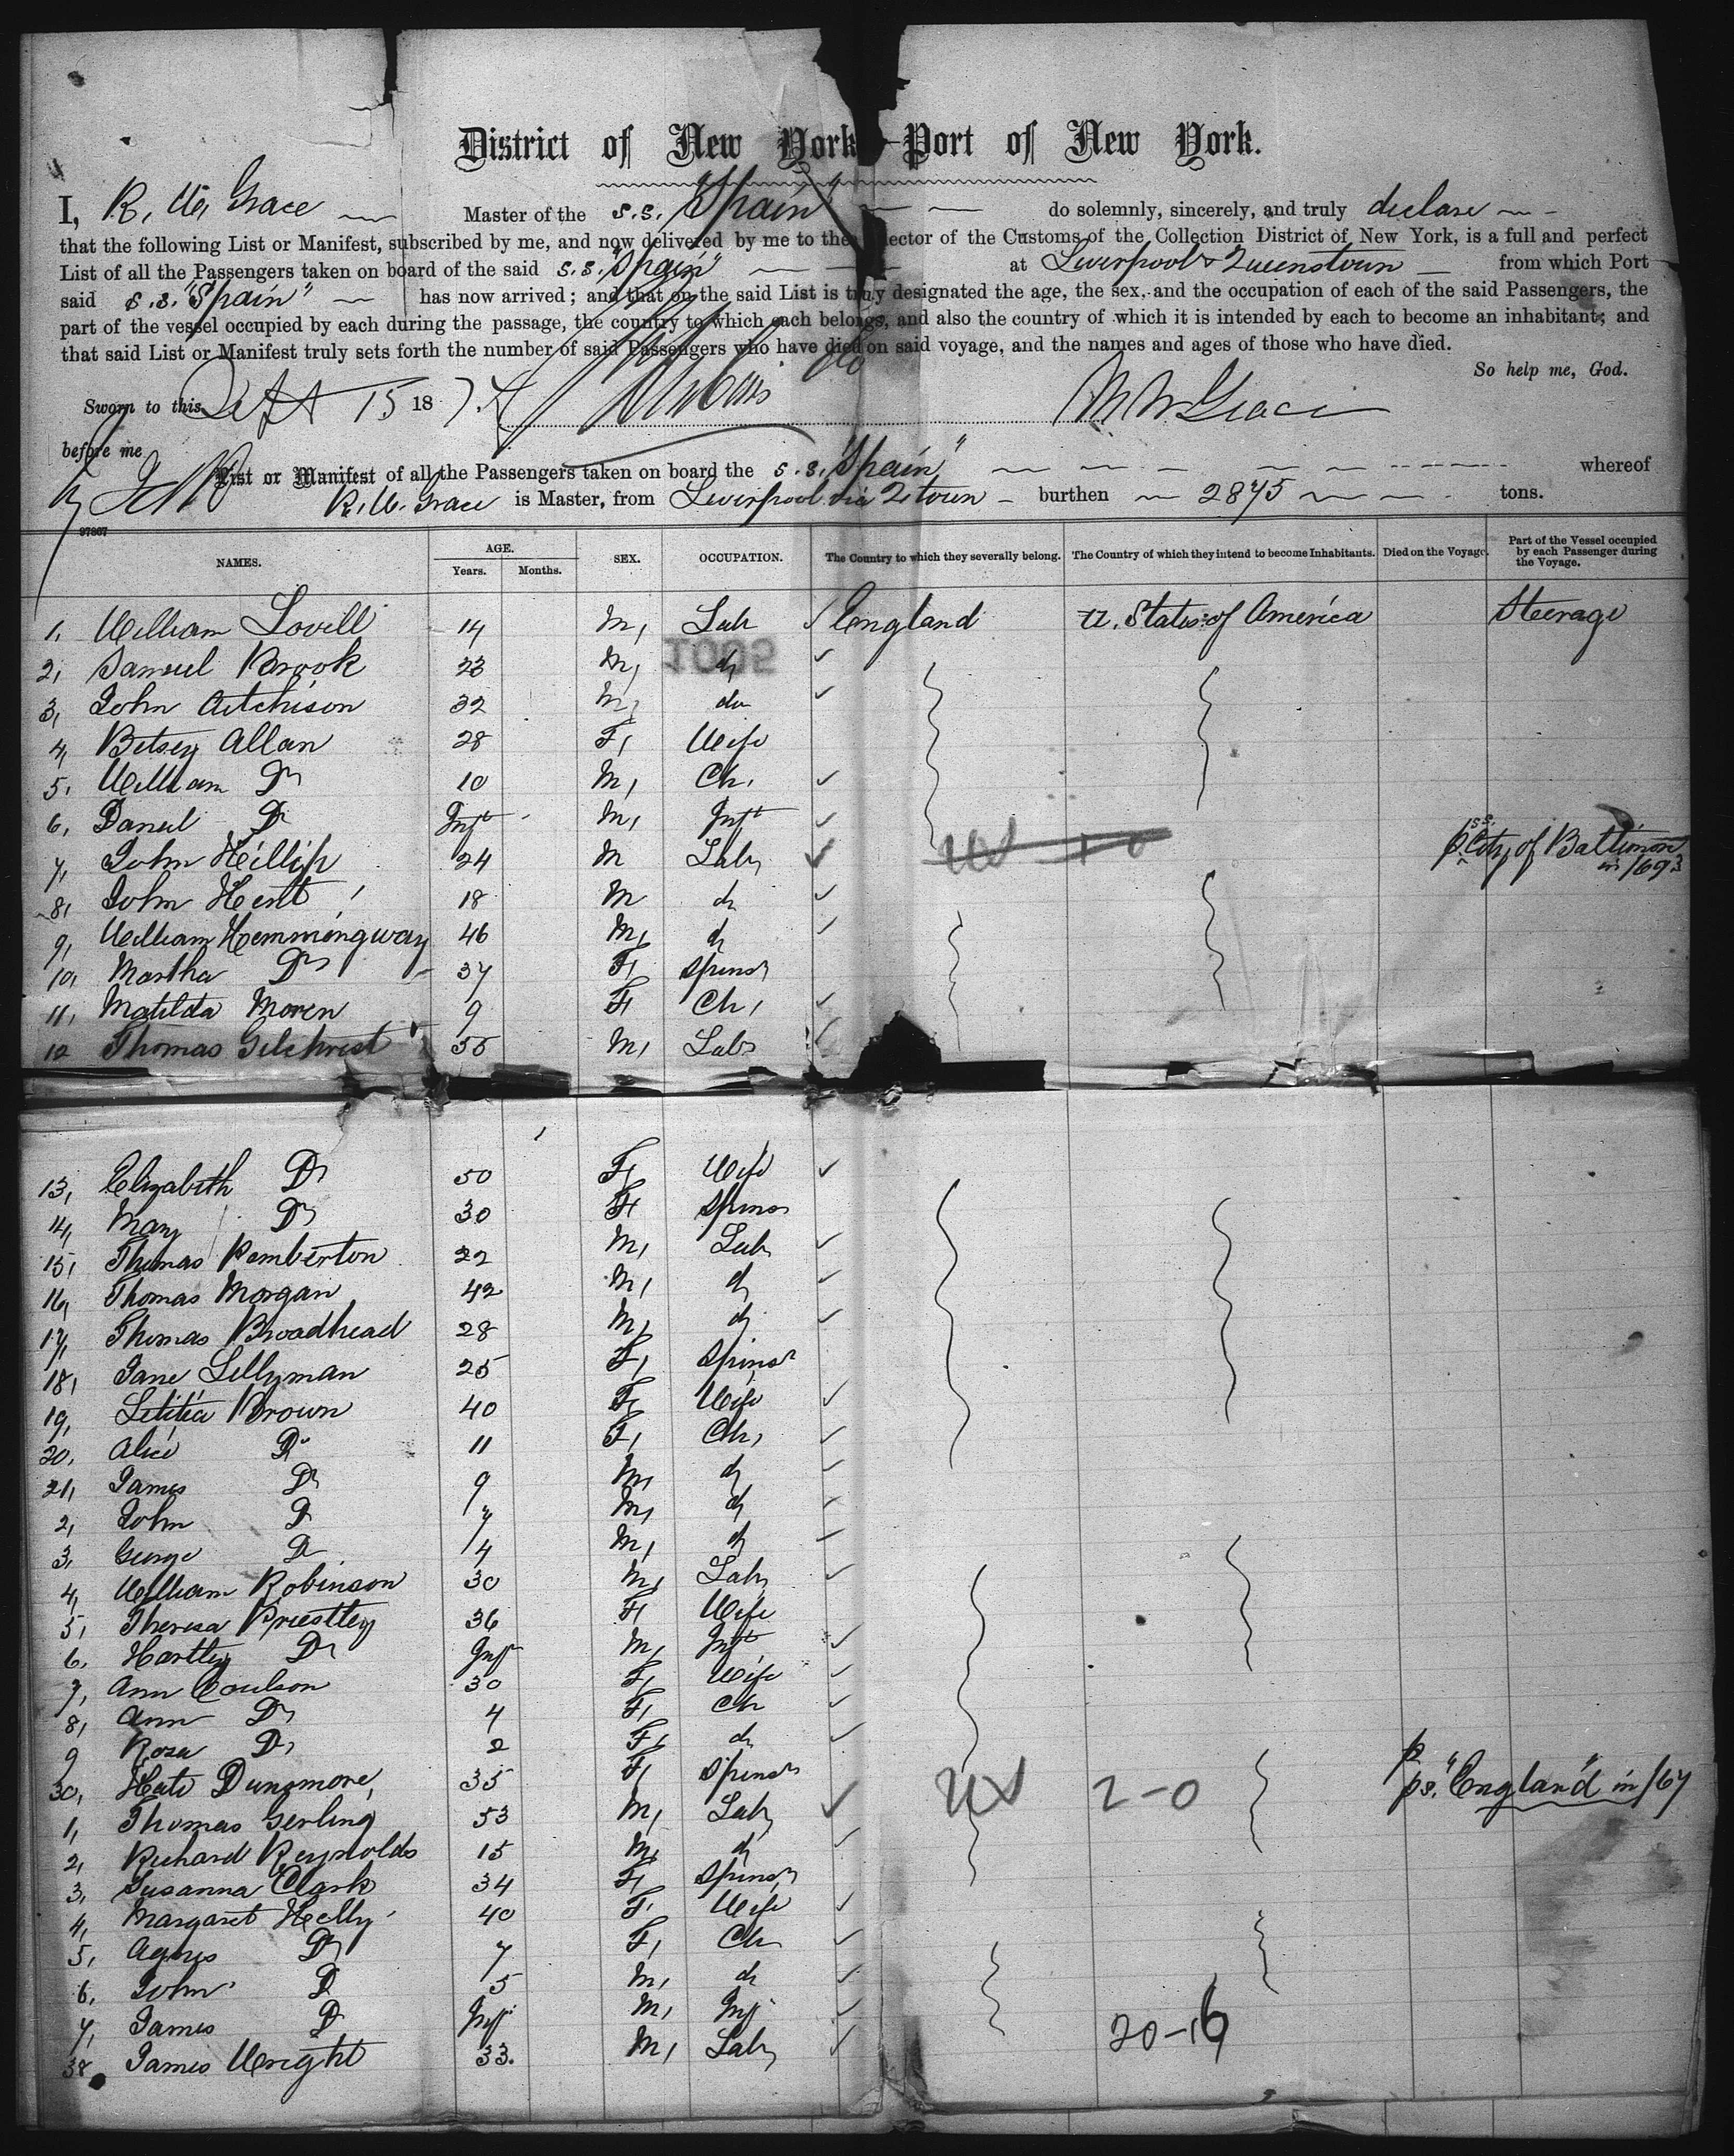 District of New York - Port of New York.
I, R. W. Grace Master of the s.s. "Spain" do solemnly, sincerely, and truly declare
that the following List or Manifest, subscribed by me, and now delivered by me to the lector of the Customs of the Collection District of New York, is a full and perfect
List of all the Passengers taken on board of the said s.s. "Spain" at Liverpool & Queenstown from which Port
said s.s. "Spain" has now arrived; and that on the said List is truly designated the age, the sex, and the occupation of each of the said Passengers, the
part of the vessel occupied by each during the passage, the country to which each belongs, and also the country of which it is intended by each to become an inhabitant; and
that said List or Manifest truly sets forth the number of said Passengers who have died on said voyage, and the names and ages of those who have died.
So help me, God.
Sworn to this Sept 15 187 R W Grace
before me
List or Manifest of all the Passengers taken on board the s.s. "Spain" whereof
R. W. Grace is Master, from Liverpool via Qtown burthen 2875 tons.
97807
NAMES. AGE. Years. Months. SEX. OCCUPATION. The Country to which they severally belong. The Country of which they intend to become Inhabitants. Died on the Voyage. Part of the Vessel occupied by each Passenger during the Voyage.
1, William Lovill 14 M, Lab England U. States of America Steerage
1005
2, Samuel Brook 23 M, do
3, John Aitchison 32 M, do
4, Betsey Allan 28 F, Wife
5, William Do 10 M, Ch,
6, Daniel Do Inft M, Inft
7, John Killip 24 M Labr US 1-0 p s.s. City of Baltimore in 1693
8, John Kent 18 M do
9, William Hemmingway 46 M, do
10, Martha Do 37 F, Spinsr
11, Matilda Moren 9 F Ch,
12 Thomas Gilchrist 55 M, Labr
13, Elizabeth Do 50 F, Wife
14, Mary Do 30 F Spinsr
15, Thomas Pemberton 22 M, Labr
16, Thomas Morgan 42 M, do
17, Thomas Broadhead 28 M, do
18, Jane Lillyman 25 F, Spinsr
19, Letitia Brown 40 F, Wife
20, Alice Do 11 F, Ch,
21, James Do 9 M, do
2, John Do 7 M, do
3, George Do 4 M, do
4, William Robinson 30 M, Labr
5, Theresa Priestley 36 F Wife
6, Hartley Do Inft M, Inft
7, Ann Coulson 30 F, Wife
8, Ann Do 4 F, Ch
9 Rosa Do 2 F, do
30, Kate Dunsmore, 35 F, Spinsr
1, Thomas Gerling 53 M, Labr US 2-0 ps. "England" in /67
2, Richard Reynolds 15 M, do
3, Susanna Clark 34 F, Spinsr
4, Margaret Kelly 40 F, Wife
5, Agnes Do 7 F, Ch
6, John Do 5 M, do
7, James Do Inft M, Inft
38, James Wright 33. M, Labr 20-16